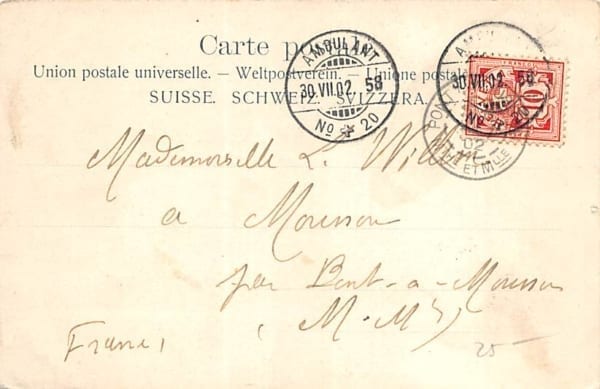 Carte po
Union postale universelle. — Weltpostverein. — Unione postale
SUISSE. SCHWEIZ. SVIZZERA.
AMBULANT
30.VII.02 58
No 20
AMBU
30.VII.02 58
No 20
FRANCO
10
PONT
02
ET MLLE
Mademoiselle L.
a Mousson
par Pont-a-Mousson
(M-M)
France
25-